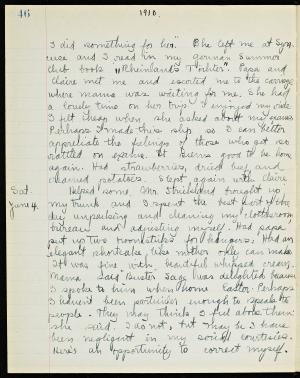 46
1910.
I did something for her." She left me at Syra-
cuse and I read in my german Summer
Club book "Rheinlands Töchter" Papa and
Claire met me and escorted me to the carriage
where mama was waiting for me. She had
a lovely time on her trip. I enjoyed my ride.
I felt cheap when she asked about my
Perhaps I made this slip so I can better
appreciate the feelings of those who get so
rattled on exams. It seems good to be home
again. Had strawberries, dried beef and
creamed potatoes. Slept again with Claire
Sat.
June 4.
Helped some. Mr. Strickland brought up
my trunk and I spent the best part of the
day unpacking and cleaning my clothesroom
bureau and adjusting myself. Had papa
put up two broomsticks for hangers. Had an
elegant shortcake, like mother only can make.
It was fine with beautiful whipped cream.
Mama said Buster Sage was delighted because
I spoke to him when home Easter. Perhaps
I haven't been particular enough to speak to
people. They may think I feel above them
she said. I do not, but maybe I have
been negligent in my social courtesies.
Here's an opportunity to correct myself.